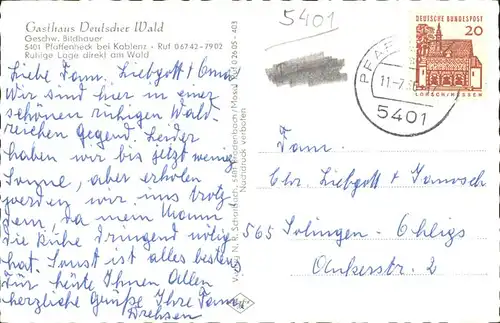 Gasthaus Deutscher Wald
Geschw. Bildhauer
5401 Pfaffenheck bei Koblenz · Ruf 06742-7902
Ruhige Lage direkt am Wald
Liebe Fam. Liebgott + Oma
Wir sind hier in einer
schönen ruhigen Wald-
reichen Gegend. Leider
haben wir bis jetzt wenig
Sonne, aber erholen
werden wir uns trotz
dem, da mein Mann
die Ruhe dringend nötig
hat. Sonst ist alles bestens
für heute Ihnen Allen
herzliche Grüße Ihre Fam.
Drehsen
Nachdruck verboten
5401
DEUTSCHE BUNDESPOST
20
LORSCH/HESSEN
11-7
5401
Fam.
Chr. Liebgott + Janosch
565 Solingen-Ohligs
Ankerstr. 2